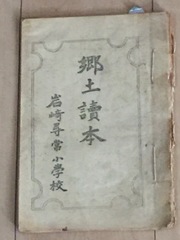 郷土讀本
岩崎尋常小學校